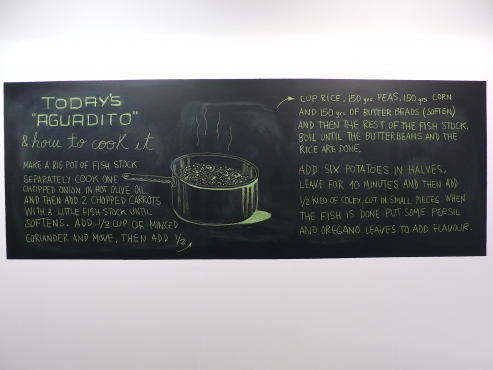 TODAY'S
"AGUADITO"
& how to cook it
MAKE A BIG POT OF FISH STOCK
SEPARATELY COOK ONE
CHOPPED ONION IN HOT OLIVE OIL
AND THEN ADD 2 CHOPPED CARROTS
WITH A LITTLE FISH STOCK UNTIL
SOFTENS. ADD 1/2 CUP OF MINCED
CORIANDER AND MOVE, THEN ADD 1/2
CUP RICE, 150 grs PEAS, 150 grs CORN
AND 150 grs OF BUTTER BEADS (SOFTEN)
AND THEN THE REST OF THE FISH STOCK.
BOIL UNTIL THE BUTTERBEANS AND THE
RICE ARE DONE.
ADD SIX POTATOES IN HALVES,
LEAVE FOR 10 MINUTES AND THEN ADD
1/2 KILO OF COLEY, CUT IN SMALL PIECES. WHEN
THE FISH IS DONE PUT SOME PERSIL
AND OREGANO LEAVES TO ADD FLAVOUR.